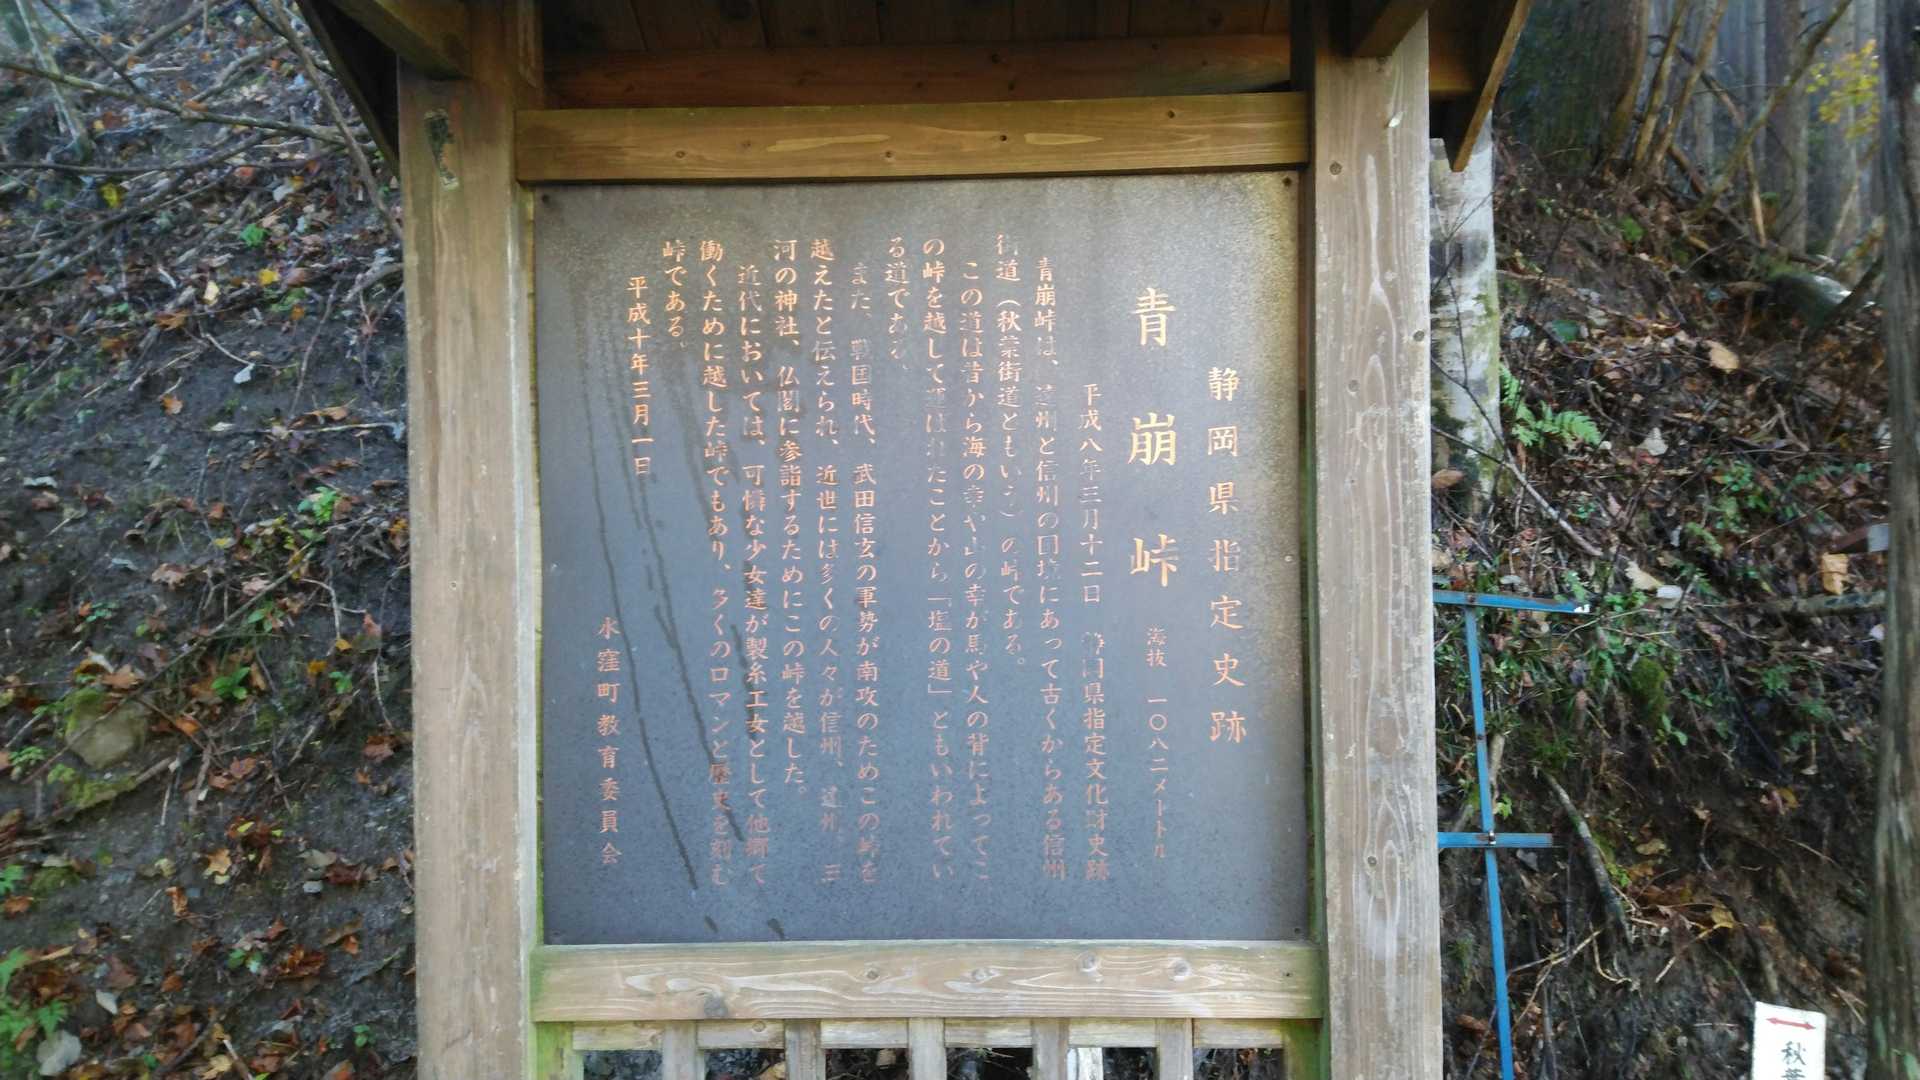 静岡県指定史跡
青崩峠 海抜 一〇八二メートル
平成八年三月十二日 静岡県指定文化財史跡
青崩峠は、遠州と信州の国境にあって古くからある信州
街道(秋葉街道ともいう)の峠である。
この道は昔から海の幸や山の幸が馬や人の背によってこ
の峠を越して運ばれたことから「塩の道」ともいわれてい
る道である。
また、戦国時代、武田信玄の軍勢が南攻のためこの峠を
越えたと伝えられ、近世には多くの人々が信州、遠州、三
河の神社、仏閣に参詣するためにこの峠を越した。
近代においては、可憐な少女達が製糸工女として他郷で
働くために越した峠でもあり、多くのロマンと歴史を刻む
峠である。
平成十年三月一日
水窪町教育委員会
秋葉